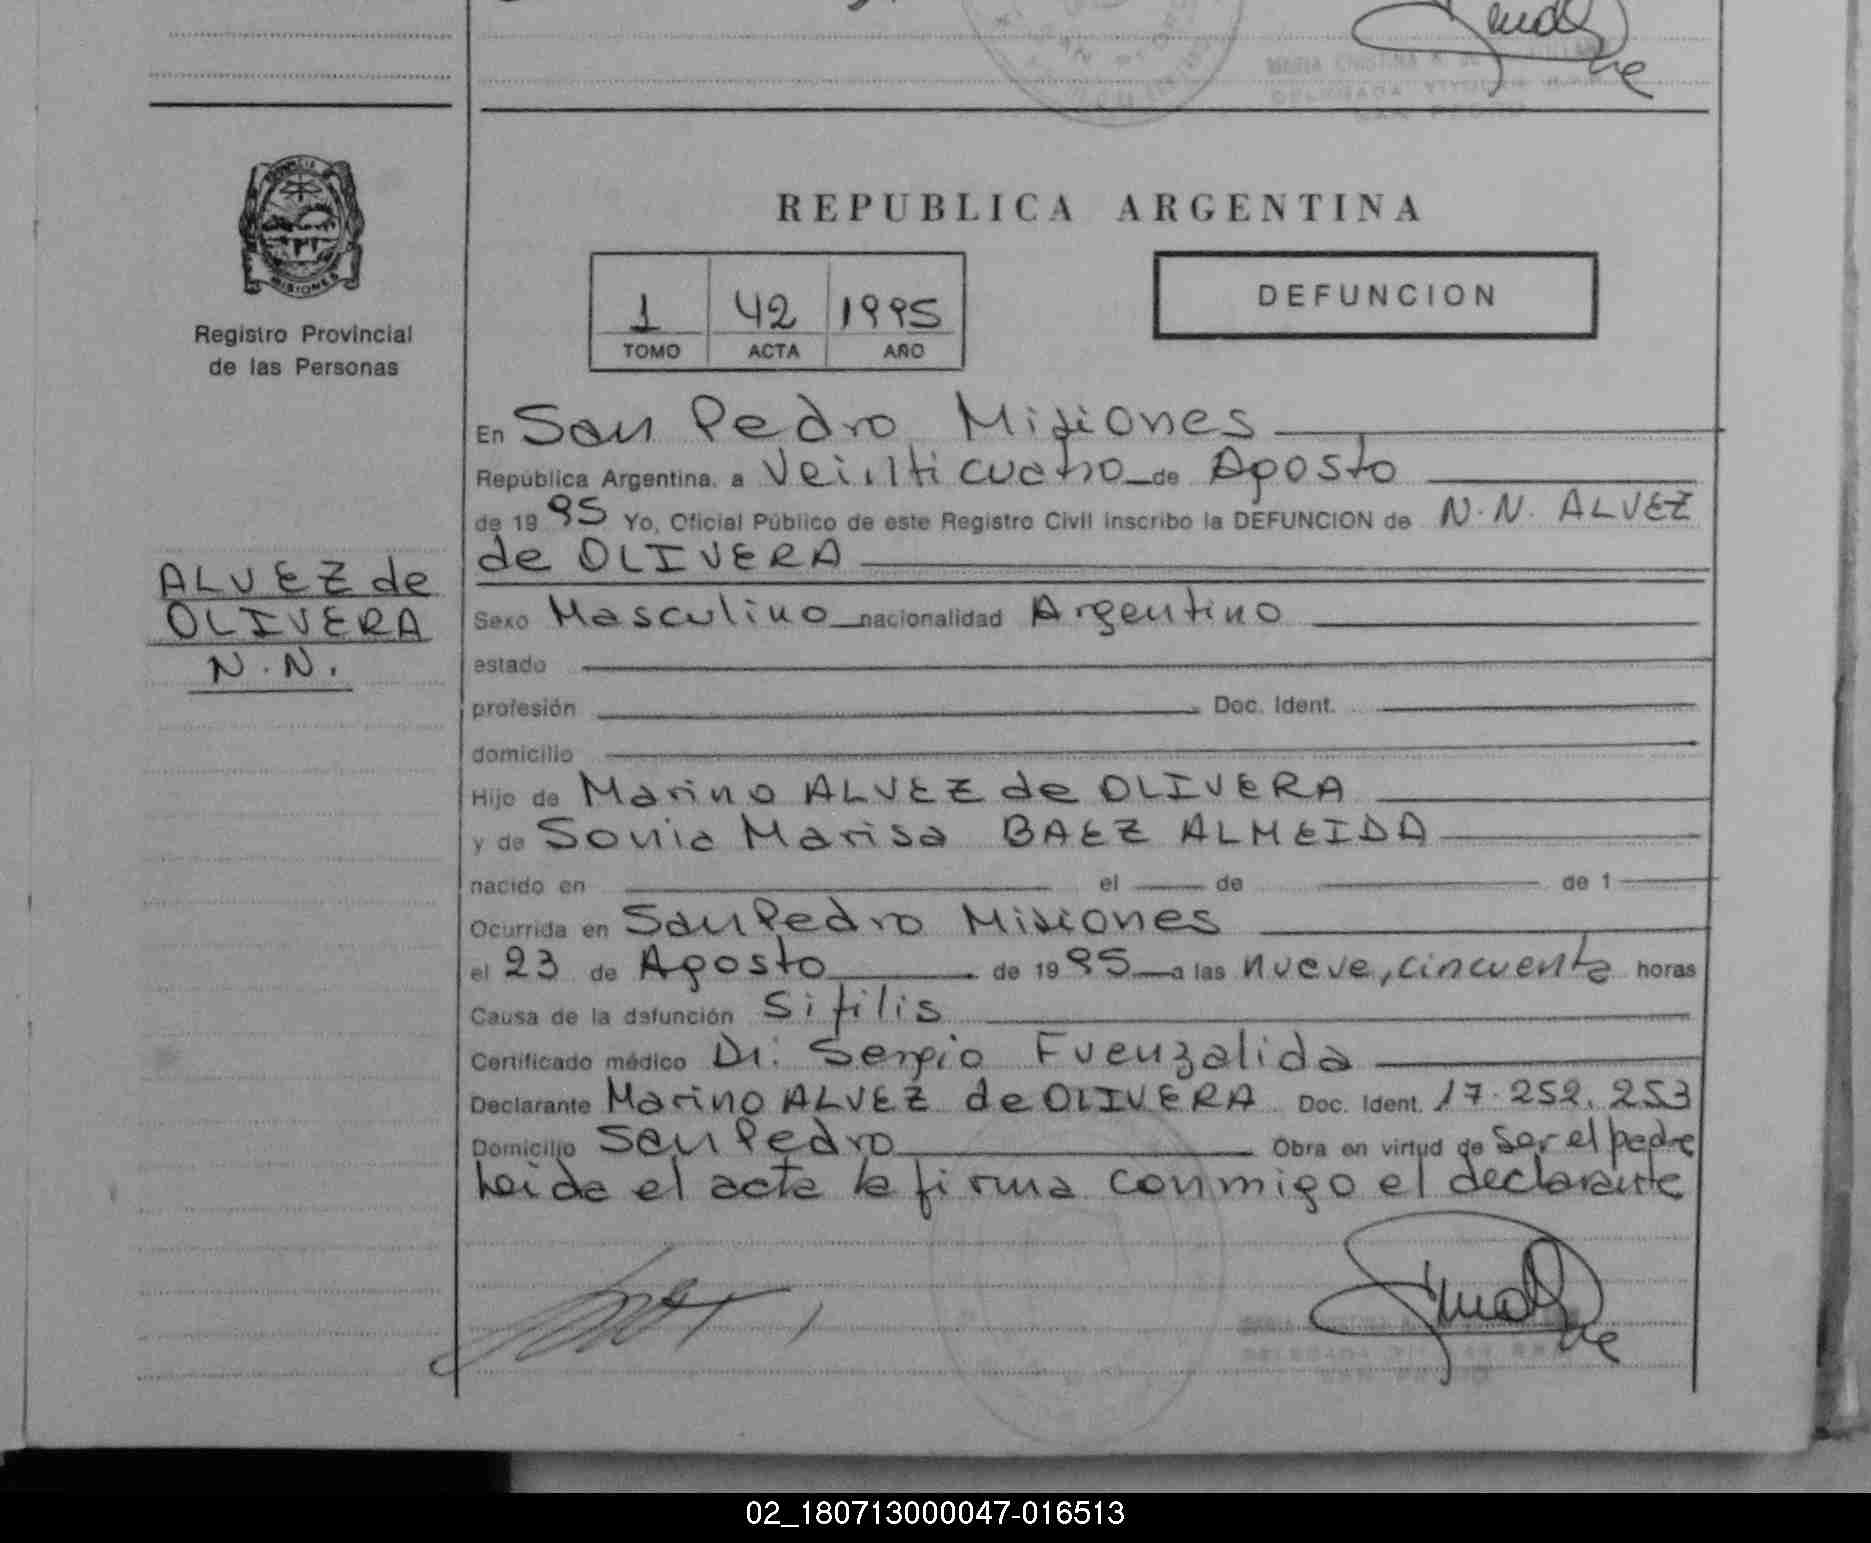 PROVINCIA DE
MISIONES
Registro Provincial
de las Personas
ALVEZ de
OLIVERA
N.N.
REPUBLICA ARGENTINA
1 42 1995
TOMO ACTA AÑO
DEFUNCION
En San Pedro Misiones
República Argentina, a Veinticuatro de Agosto
de 1995 Yo, Oficial Público de este Registro Civil inscribo la DEFUNCION de N.N. ALVEZ
de OLIVERA
Sexo Masculino nacionalidad Argentino
estado
profesión Doc. Ident.
domicilio
Hijo de Marino ALVEZ de OLIVERA
y de Sonia Marisa BAEZ ALMEIDA
nacido en el de de 1
Ocurrida en San Pedro Misiones
el 23 de Agosto de 1995 a las nueve, cincuenta horas
Causa de la defunción Sifilis
Certificado médico Dr. Sergio Fuenzalida
Declarante Marino ALVEZ de OLIVERA Doc. Ident. 17.252.253
Domicilio San Pedro Obra en virtud de Ser el padre
Leida el acta la firma conmigo el declarante
SAN PEDRO
02_180713000047-016513